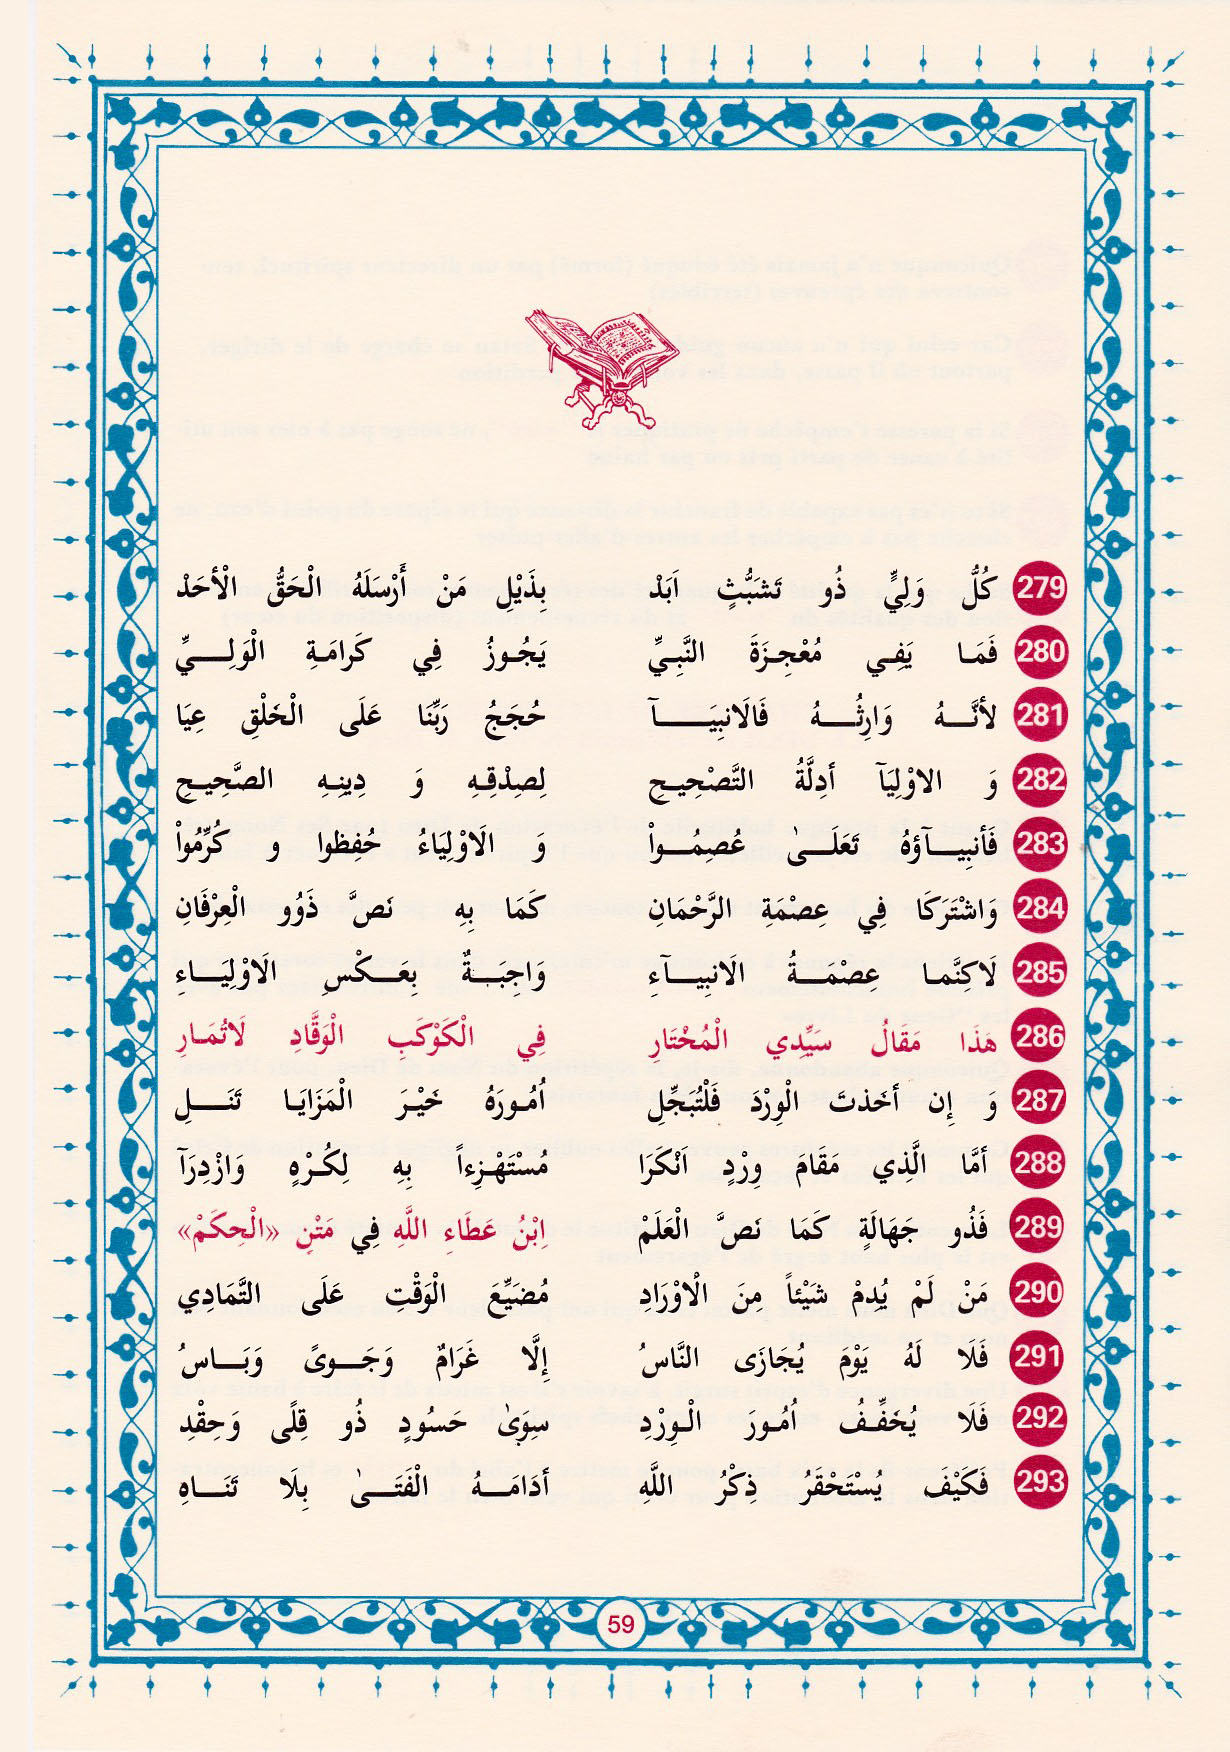 279 كُلُّ وَلِيٍّ ذُو تَشَبُّثٍ اَبَدْ بِذَيْلِ مَنْ أَرْسَلَهُ الْحَقُّ الْأَحَدْ
280 فَمَا يَفِي مُعْجِزَةَ النَّبِيِّ يَجُوزُ فِي كَرَامَةِ الْوَلِيِّ
281 لأنَّهُ وَارِثُهُ فَالَانبِيَآ حُجَجُ رَبِّنَا عَلَى الْخَلْقِ عِيَا
282 وَ الاوْلِيَآ أدِلَّةُ التَّصْحِيحِ لِصِدْقِهِ وَ دِينِهِ الصَّحِيحِ
283 فَأنبِيآؤهُ تَعَلَىٰ عُصِمُواْ وَ الَاوْلِيَاءُ حُفِظوا و كُرِّمُواْ
284 وَاشْتَرَكَا فِي عِصْمَةِ الرَّحْمَانِ كَمَا بِهِ نَصَّ ذَوُو الْعِرْفَانِ
285 لَاكِنَّما عِصْمَةُ الَانبِيآءِ وَاجِبَةٌ بِعكْسِ الَاوْلِيَاءِ
286 هَذَا مَقَالُ سَيِّدِي الْمُخْتَارِ فِي الْكَوْكَبِ الْوَقَّادِ لَاتُمَارِ
287 وَ إِن أخَذتَ الْوِرْدَ فَلْتُبَجِّلِ اُمُورَهُ خَيْرَ الْمَزَايَا تَنَلِ
288 أمَّا الَّذي مَقَامَ وِرْدٍ اَنْكَرَا مُسْتَهْزِءاً بِهِ لِكُرْهٍ وَازْدِرَآ
289 فَذُو جَهَالَةٍ كَمَا نَصَّ الْعَلَمْ اِبْنُ عَطَاءِ اللَّهِ فِي مَتْنِ «الْحِكَمْ»
290 مَنْ لَمْ يُدِمْ شَيْئاً مِنَ الْاوْرَادِ مُضَيِّعَ الْوَقْتِ عَلَى التَّمَادِي
291 فَلَا لَهُ يَوْمَ يُجَازَى النَّاسُ إِلَّا غَرَامٌ وَجَوىً وَبَاسُ
292 فَلَا يُخَفِّفُ اُمُورَ الْوِرْدِ سِوَىٰ حَسُودٍ ذُو قِلًى وَحِقْدِ
293 فَكَيْفَ يُسْتَحْقَرُ ذِكْرُ اللَّهِ أدَامَهُ الْفَتَىٰ بِلَا تَنَاهِ
59